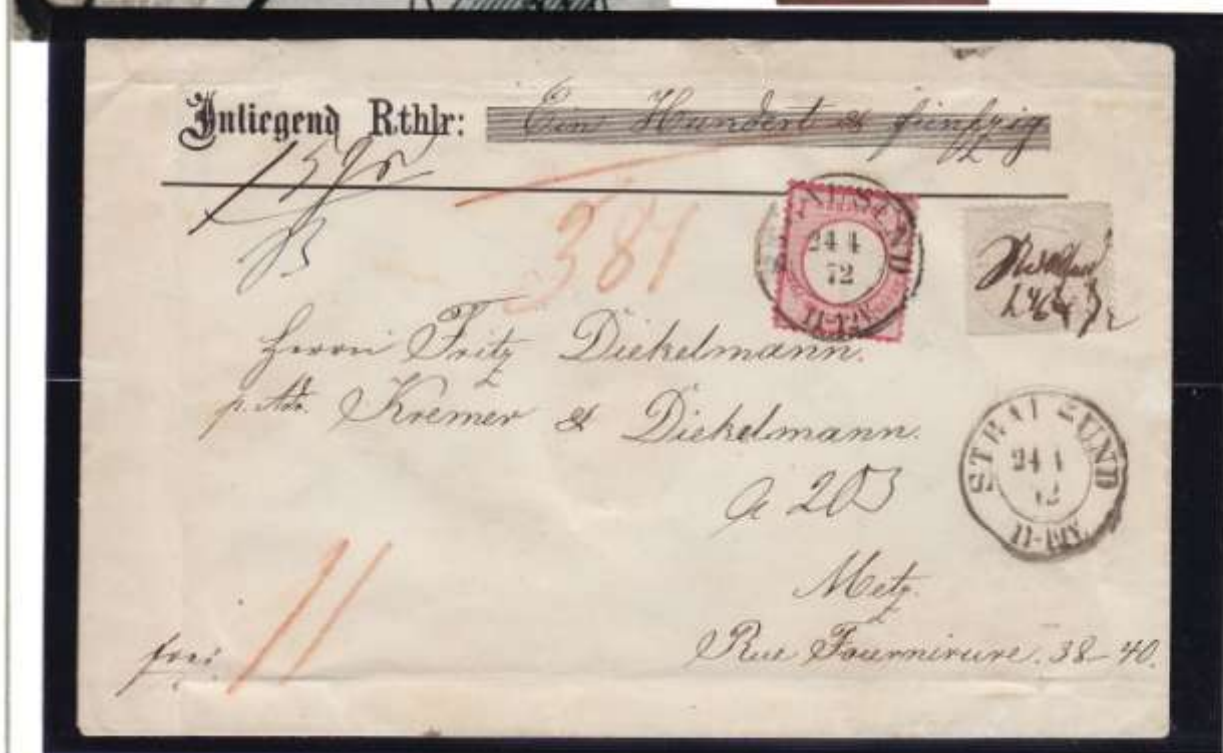 Inliegend Rthlr: Ein Hundert & fünfzig
381
STRALSUND
24 4
72
11-12V.
Herrn Fritz Diekelmann.
p. Adr. Kremer & Diekelmann.
a 203
STRALSUND
24 4
72
11-12V.
Metz.
frei.
11
Rue Fournirure. 38-40.